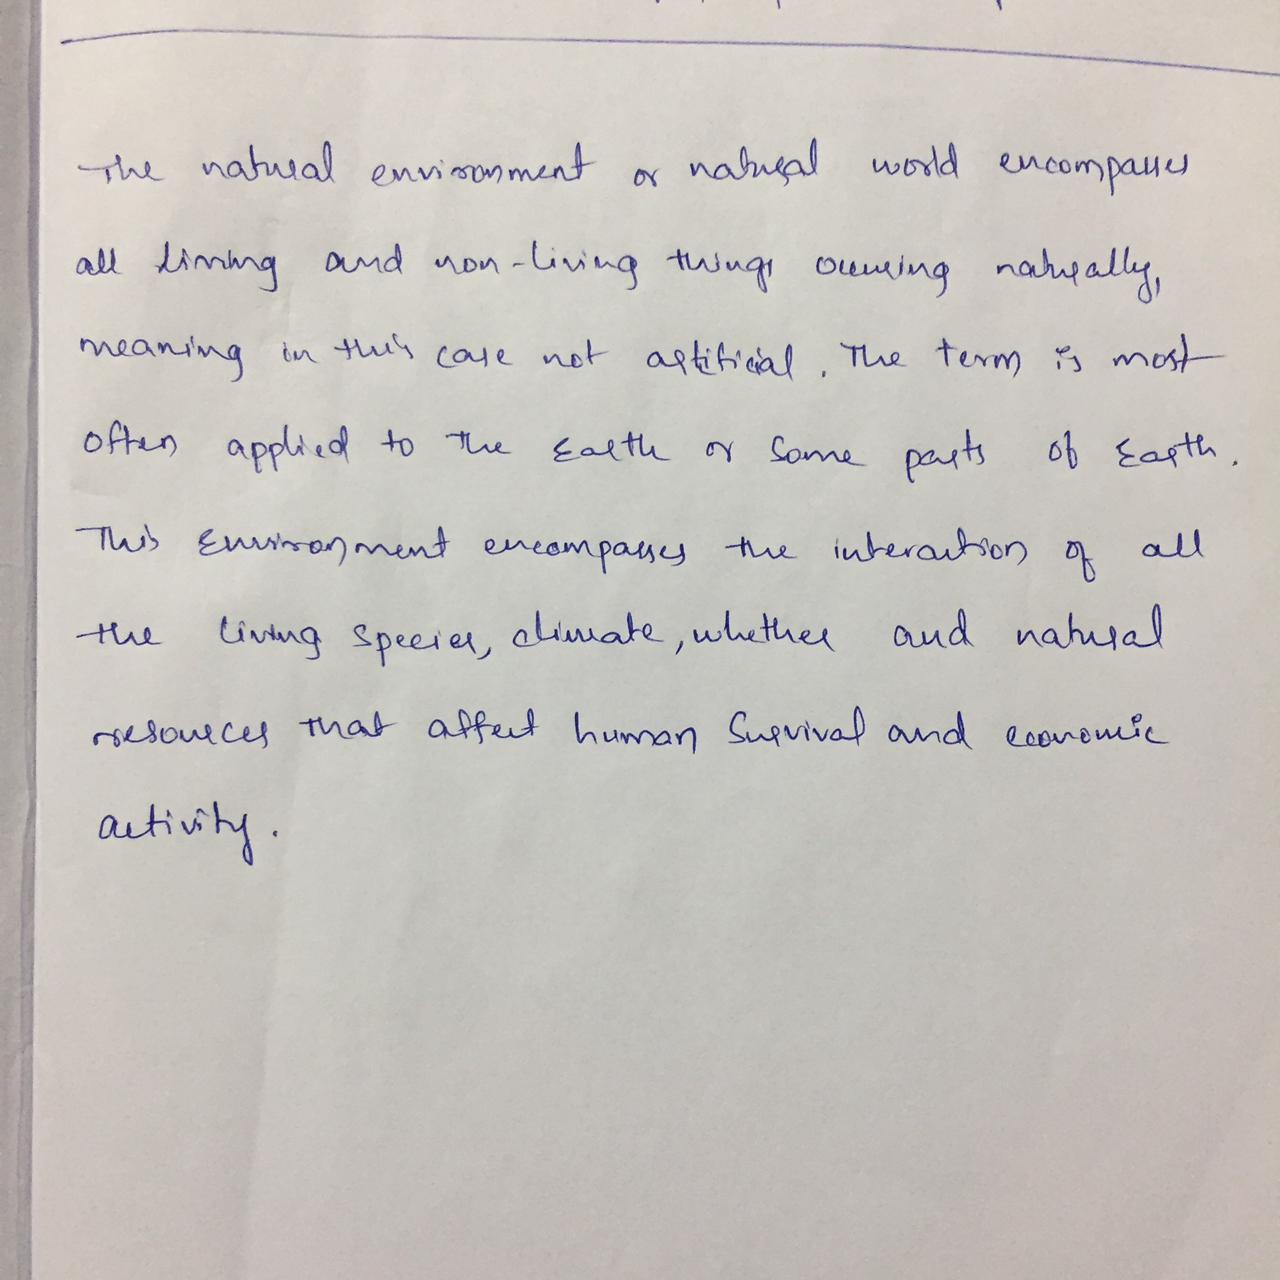 The natural environment or natural world encompasses
all living and non-living things occuring naturally,
meaning in this case not artificial. The term is most
often applied to the Earth or some parts of Earth.
This Environment encompasses the interaction of all
the living species, climate, whether and natural
resources that affect human survival and economic
activity.